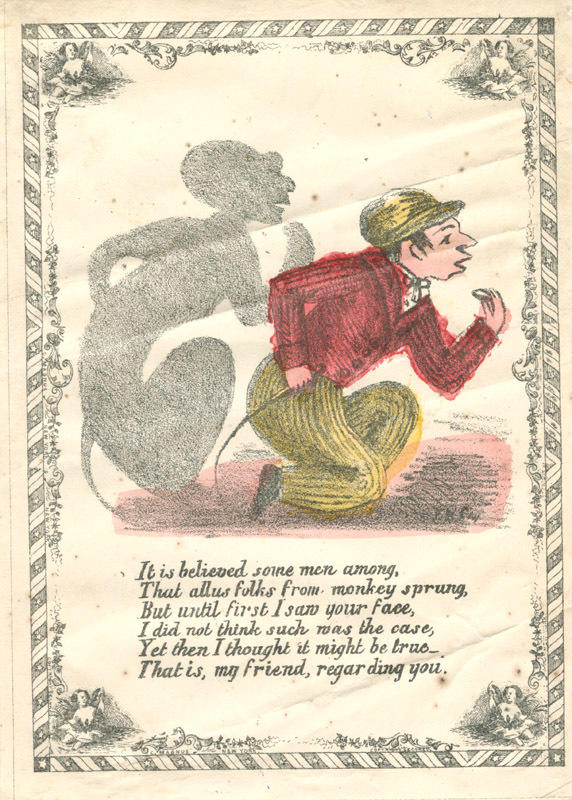 It is believed some men among,
That allus folks from monkey sprung,
But until first I saw your face,
I did not think such was the case,
Yet then I thought it might be true_
That is, my friend, regarding you.
MAGNUS NEW YORK